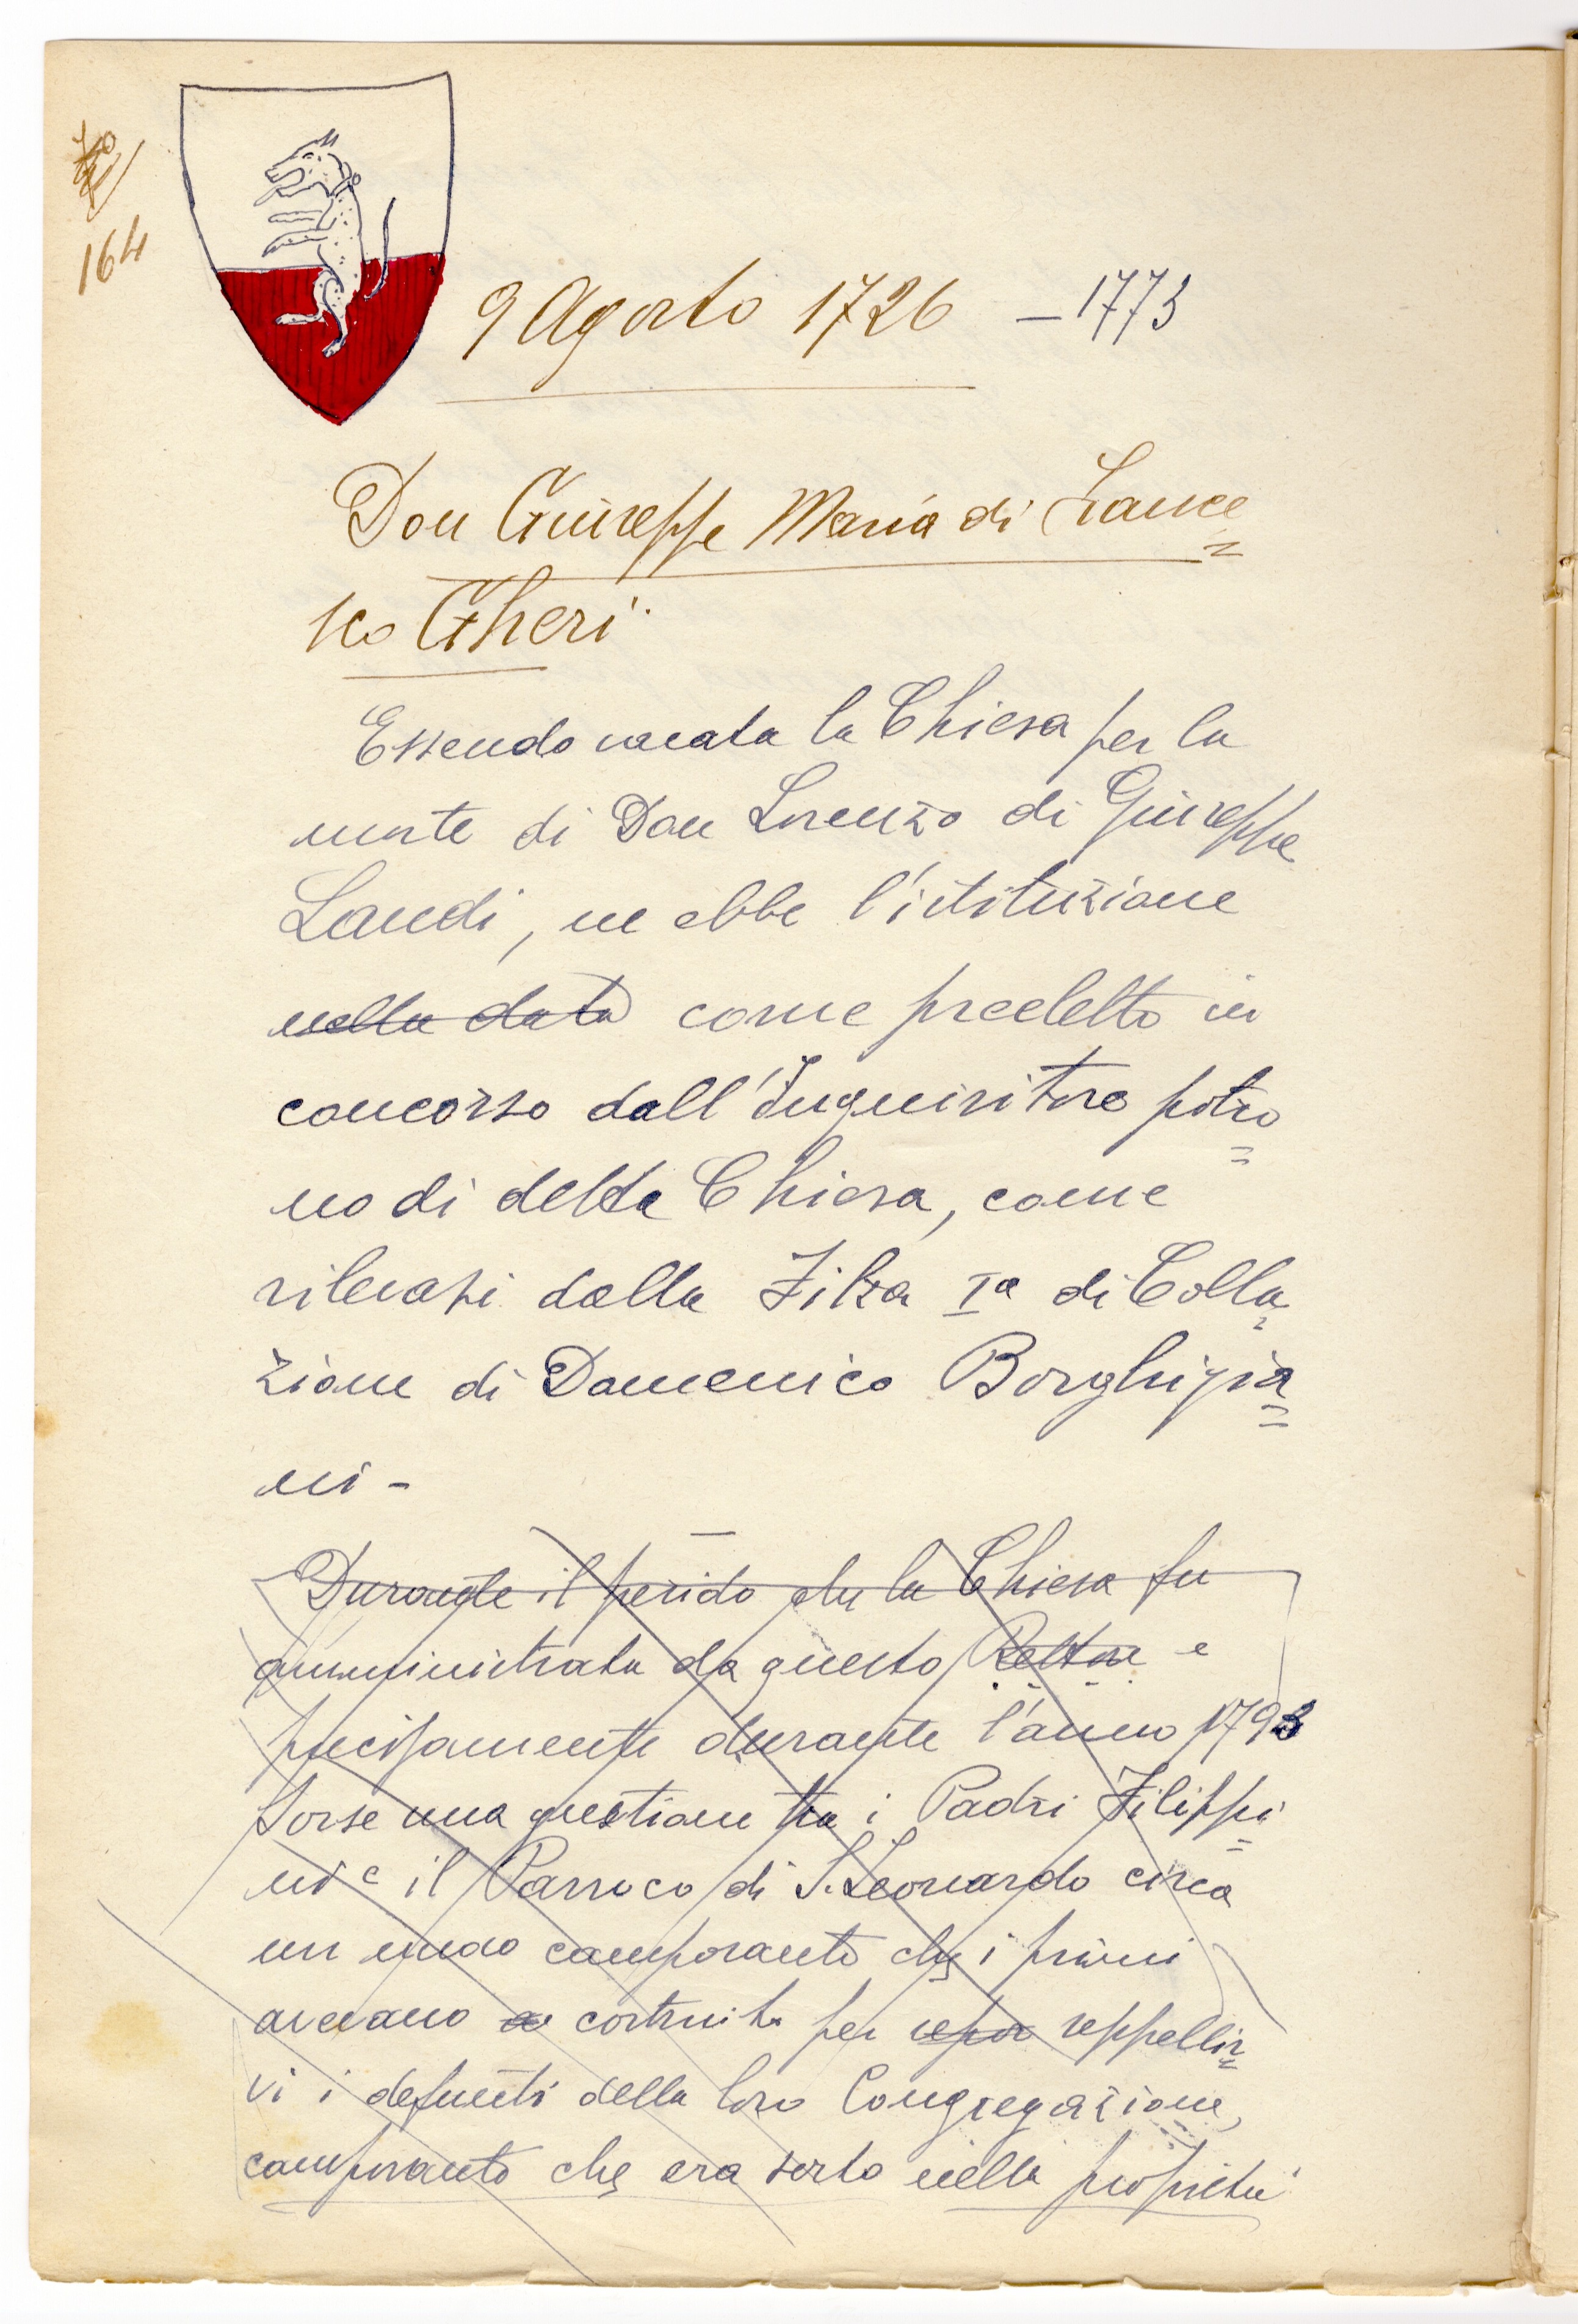 164
9 Agosto 1726 – 1773
Don Giuseppe Maria di
sco Gheri
Essendo vacata la Chiesa per la
morte di Don Lorenzo di Giuseppe
Landi, ne ebbe l'istituzione
nella data come predetto in
concorso dall'Inquisitore patro=
no di detta Chiesa, come
rilevasi dalla Filza Iª di Colla=
zione di Domenico Borghigia=
ni -
Durante il perido che la Chiesa fu
amministrata da questo Rettore e
precisamente durante l'anno 1793
sorse una questione tra i Padri Filippi=
ni e il Parroco di S. Leonardo circa
un nuovo camposanto che i primi
avevano costruito per seppellir=
vi i defunti della loro Congregazione,
camposanto che era sorto nella proprietà